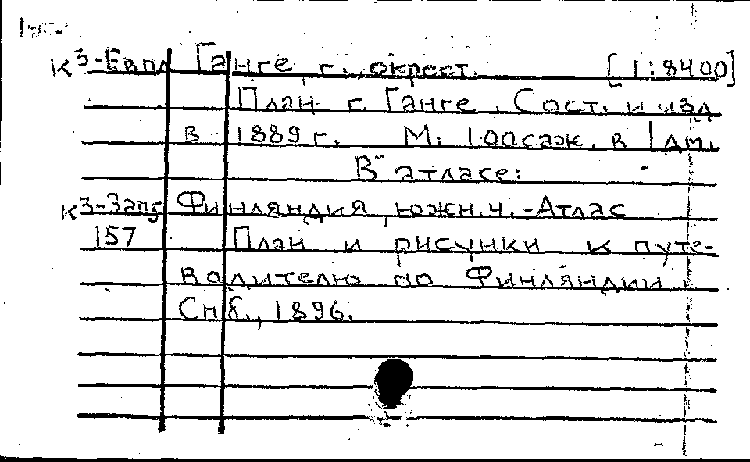 К³-Евпд Ганге г., окрест. [1:8400]
План г. Ганге. Сост. и изд
в 1889 г. М. 100 саж. в 1 дм.
В атласе:
К³-Зап5 Финляндия, южн.ч. - Атлас
157 План и рисунки к путе-
водителю по Финляндии
Спб., 1896.